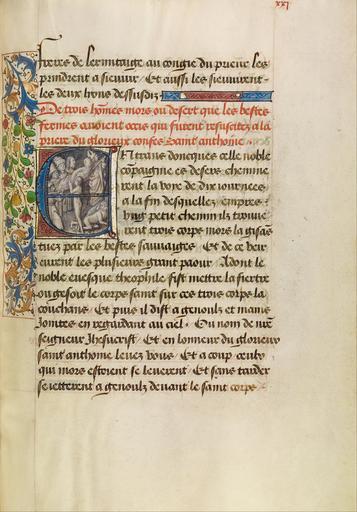 xxj
freres de lermitaige au congie du prieur les
prindrent a sieuvir / Et aussi les sieuvirent
les deux lyons dessusdiz
De trois hom̄es mors ou desert que les bestes
fermes avoient occis qui furent resuscitez a la
priere du glorieux confes Saint anthoine
Et trans doncques celle noble
cōpaignie es desers chemine
rent la voye de dix journees
a la fin desquelles empres
vng petit chemin ilz trouve
rent trois corps mors la gisās
tuez par les bestes sauvaiges Et de ce veir
eurent les plusieurs grant paour / Adont le
noble evesque theophile fist mettre la fiertre
ou gesoit le corps saint sur ces trois corps la
couchans / Et puis il dist a genoulz et mains
Jointes en regardant au ciel / Ou nom de nr̄e
seigneur Jhesucrist / Et en lonneur du glorieux
saint anthoine levez vous / Et a coup ceulx
qui mors estoient se leverent / Et sans tarder
se jetterent a genoulz devant le saint corps